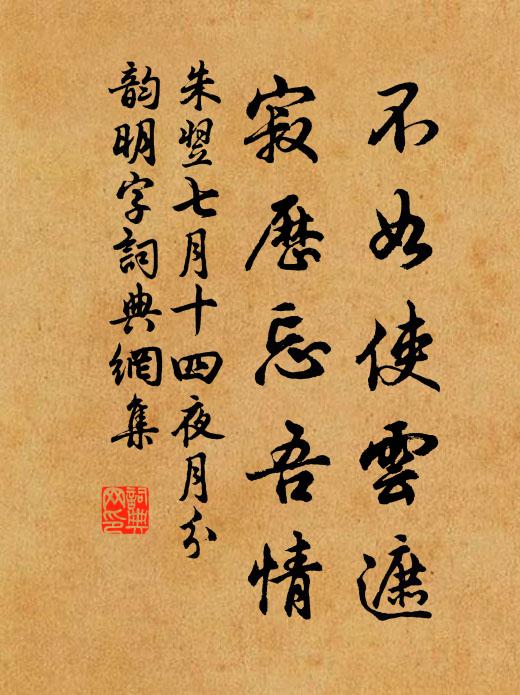 不如使雲遮
寂歷忘吾情
朱翌七月十四夜月分
韵明字詞典網集
詞典网印